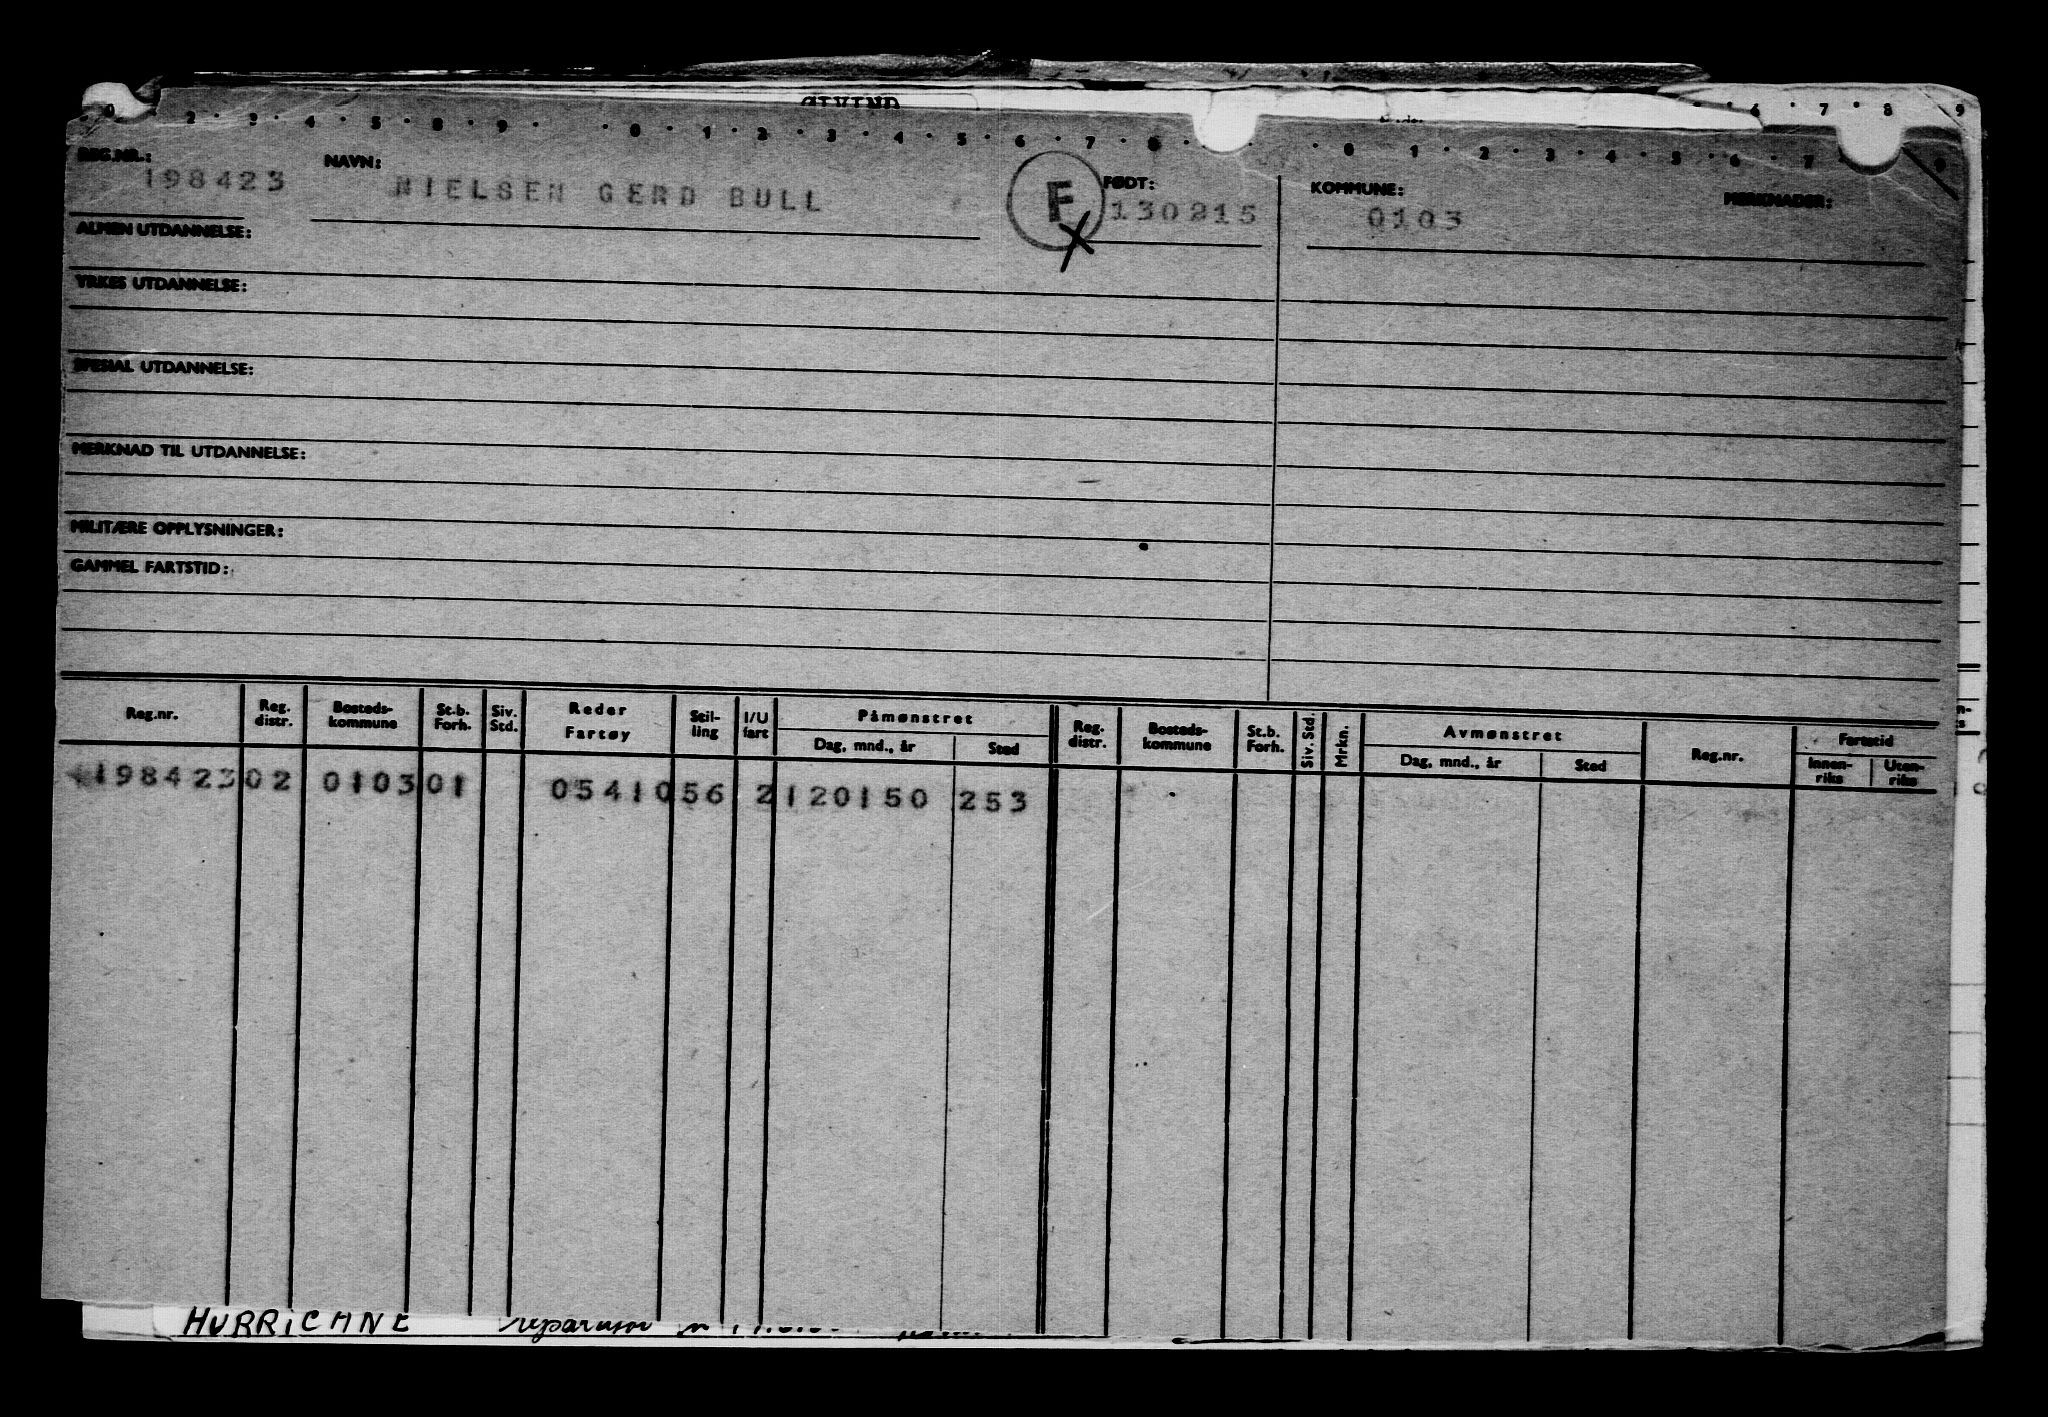 ØIVIND
0 2 3 4 5 8 9 0 1 2 3 4 5 6 7 8 0 1 2 3 4 5 6 7 9
6 7 8 9
REG.NR.: NAVN: FØDT: KOMMUNE: MERKNADER:
198423 NIELSEN GERD BULL F 130215 0103
X
ALMEN UTDANNELSE:
YRKES UTDANNELSE:
SPESIAL UTDANNELSE:
MERKNAD TIL UTDANNELSE:
MILITÆRE OPPLYSNINGER:
GAMMEL FARTSTID:
Reg.nr. Reg. distr. Bosteds- kommune St.b. Forh. Siv. Std. Reder Fartøy Stil- ling I/U fart Påmønstret Dag, mnd., år Sted Reg. distr. Bosteds- kommune St.b. Forh. Siv. Std. Mrkn. Avmønstret Dag, mnd., år Sted Reg.nr. Fartstid Innen- riks Uten- riks
198423 02 0103 01 05410 56 2 120150 253
HURRICANE